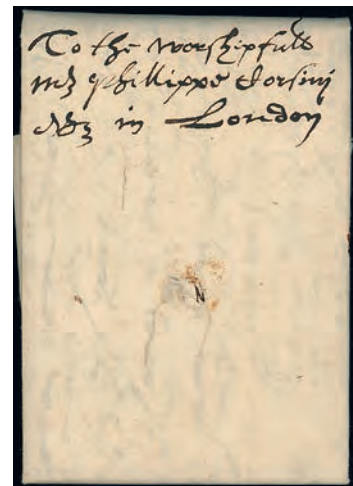 To the worshipfull
mr Phillippe Corsini
in London